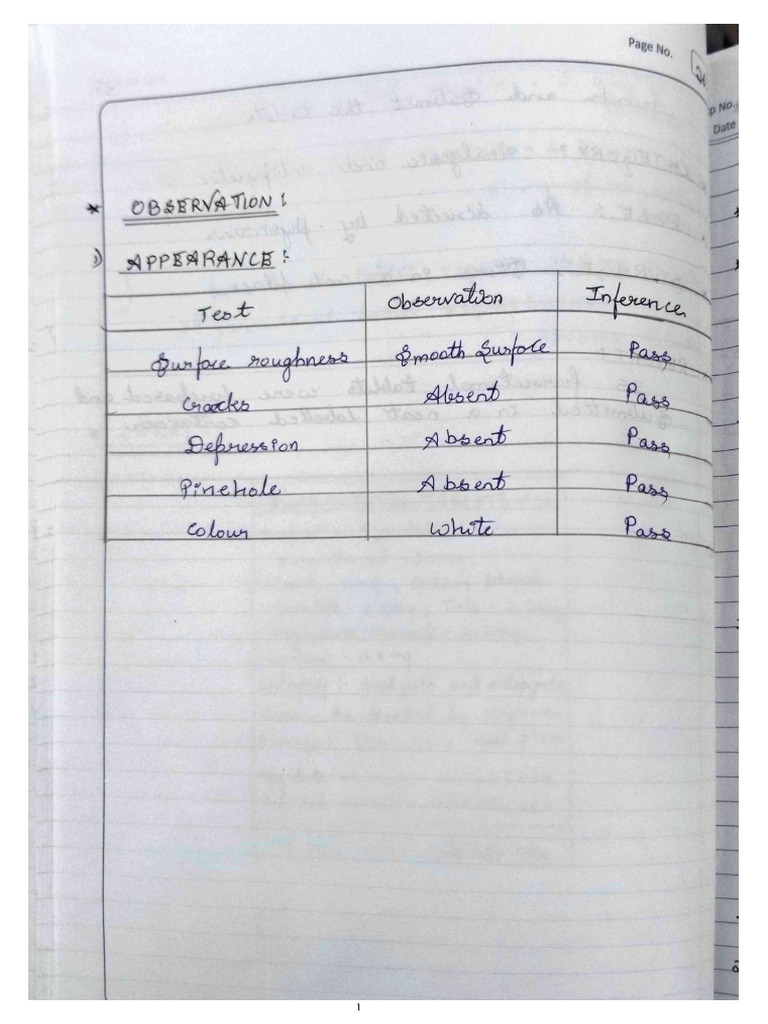 Page No.
p No.
Date
* OBSERVATION :
1) APPEARANCE :
Test Observation Inference
Surface roughness Smooth Surface Pass
Cracks Absent Pass
Depression Absent Pass
Pinehole Absent Pass
Colour White Pass
1